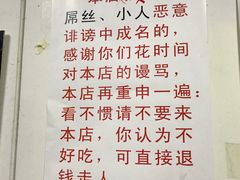 屌丝、小人恶意
诽谤中成名的，
感谢你们花时间
对本店的谩骂，
本店再重申一遍：
看不惯请不要来
本店，你认为不
好吃，可直接退
钱走人